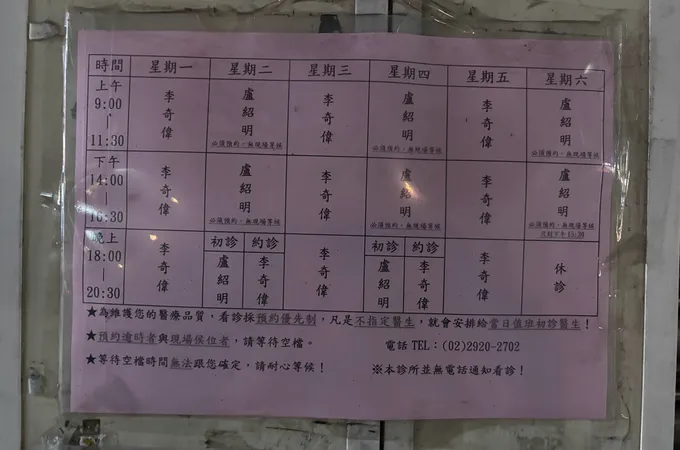 時間 星期一 星期二 星期三 星期四 星期五 星期六
上午 9:00 | 11:30 李奇偉 盧紹明 李奇偉 盧紹明 李奇偉 盧紹明
必須預約，無現場等候 必須預約，無現場等候 必須預約，無現場等候
下午 14:00 | 16:30 李奇偉 盧紹明 李奇偉 盧紹明 李奇偉 盧紹明
必須預約，無現場等候 必須預約，無現場等候 必須預約，無現場等候
晚上 18:00 | 20:30 李奇偉 初診 盧紹明 約診 李奇偉 李奇偉 初診 盧紹明 約診 李奇偉 李奇偉 休診
★為維護您的醫療品質，看診採預約優先制，凡是不指定醫生，就會安排給當日值班初診醫生！
★預約逾時者與現場侯位者，請等待空檔。 電話 TEL：(02)2920-2702
★等待空檔時間無法跟您確定，請耐心等候！ ※本診所並無電話通知看診！